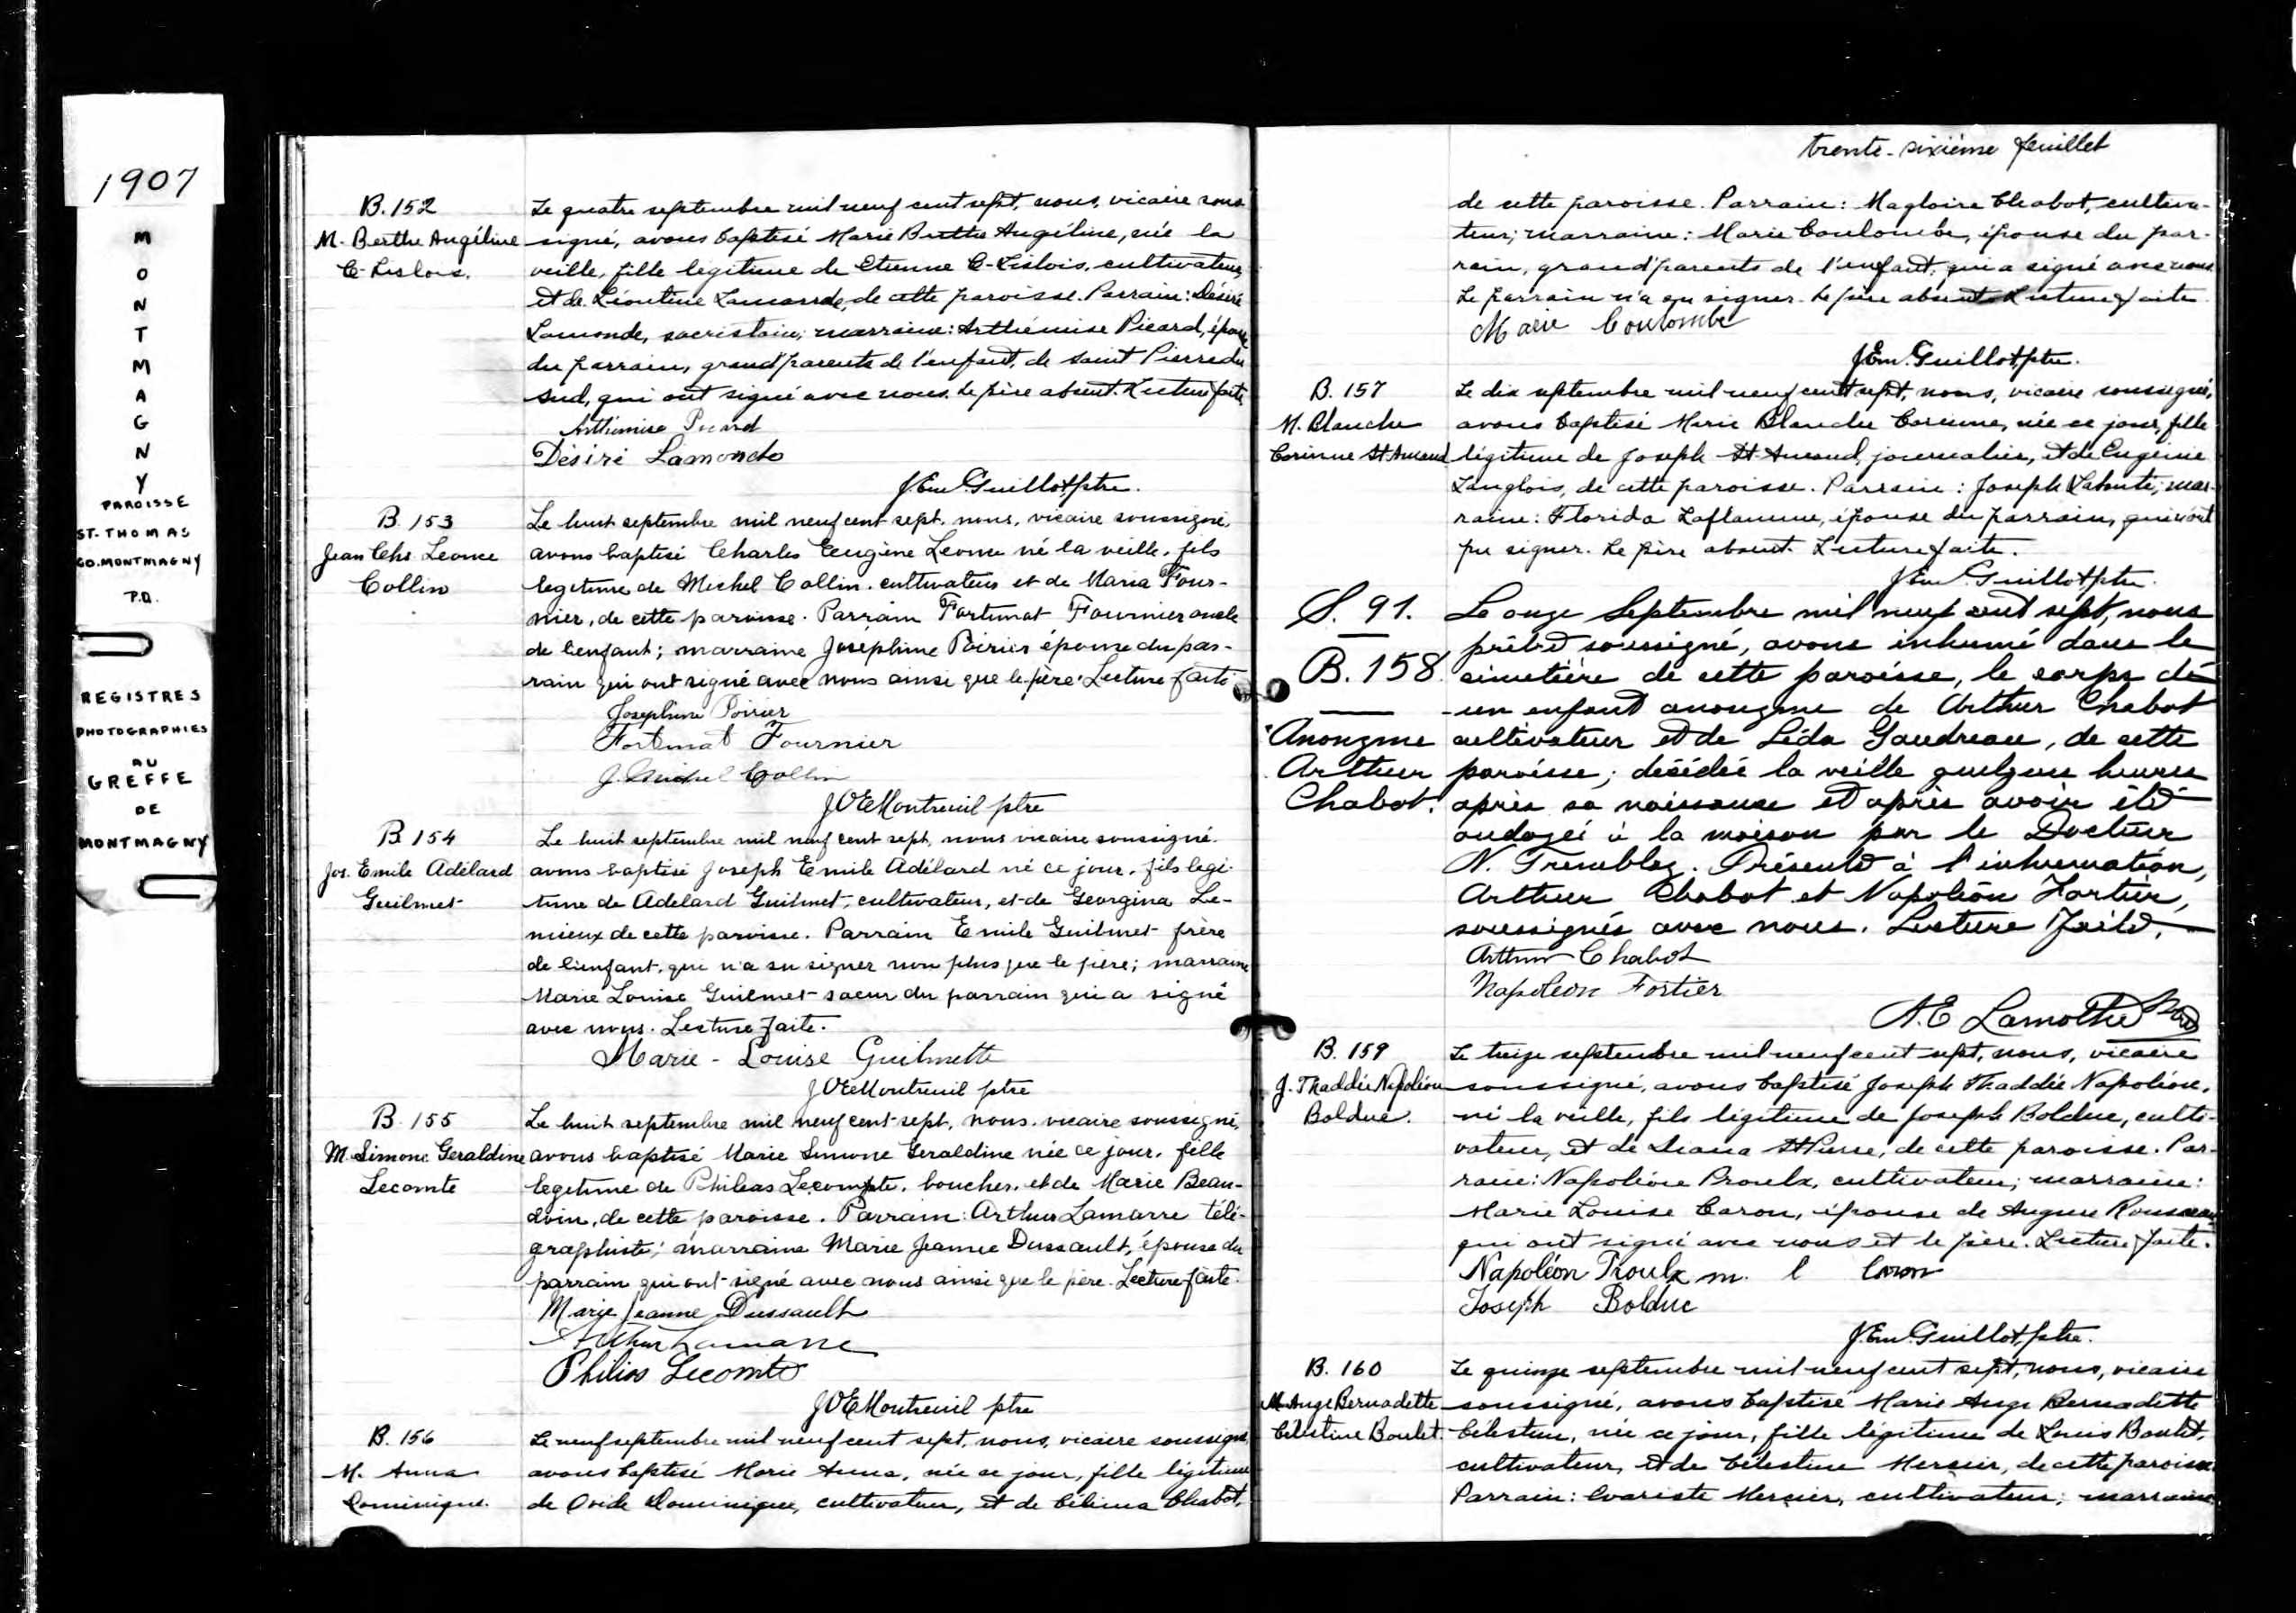 1907
M
O
N
T
M
A
G
N
Y
PAROISSE
ST. THOMAS
CO. MONTMAGNY
P.Q.
REGISTRES
PHOTOGRAPHIES
AU
GREFFE
DE
MONTMAGNY
B. 152
M. Berthe Angéline
C-Lislois.
Le quatre septembre mil neuf cent sept, nous, vicaire sous
signé, avons baptisé Marie Berthe Angéline, née la
veille, fille legitime de Etienne C-Lislois, cultivateur,
et de Léontine Lamonde, de cette paroisse. Parrain: Désiré
Lamonde, sacristain; marraine: Arthémise Picard, épouse
du parrain, grand'parents de l'enfant, de Saint Pierre du
Sud, qui ont signé avec nous. Le père absent. Lecture faite
Arthémise Picard
Désiré Lamonde
J. Em. Guillot, ptre.
B. 153
Jean Chs Leonce
Collin
Le huit septembre mil neuf cent sept, nous, vicaire soussigné,
avons baptisé Charles Eugène Leonce né la veille, fils
legitime de Michel Collin, cultivateur et de Maria Four-
nier, de cette paroisse. Parrain Fortunat Fournier oncle
de l'enfant; marraine Joséphine Poirier épouse du par-
rain qui ont signé avec nous ainsi que le père. Lecture faite
Josephine Poirier
Fortunat Fournier
J. Michel Collin
J O E Montreuil ptre
B 154
Jos. Emile Adélard
Guilmet
Le huit septembre mil neuf cent sept, nous vicaire soussigné
avons baptisé Joseph Emile Adélard né ce jour, fils legi-
time de Adelard Guilmet, cultivateur, et de Georgina Le-
mieux de cette paroisse. Parrain Emile Guilmet frère
de l'enfant, qui n'a su signer non plus que le père; marraine
Marie Louise Guilmet soeur du parrain qui a signé
avec nous. Lecture faite.
Marie-Louise Guilmette
J O E Montreuil ptre
B 155
M. Simone Geraldine
Lecomte
Le huit septembre mil neuf cent sept, nous, vicaire soussigné,
avons baptisé Marie Simone Geraldine née ce jour, fille
legitime de Phileas Lecompte, boucher, et de Marie Beau-
doin, de cette paroisse. Parrain: Arthur Lamarre télé-
graphiste; marraine Marie Jeanne Dussault, épouse du
parrain qui ont signé avec nous ainsi que le père. Lecture faite.
Marie Jeanne Dussault
Arthur Lamarre
Philias Lecomte
J O E Montreuil ptre
B. 156
M. Anna
Dominique.
Le neuf septembre mil neuf cent sept, nous, vicaire soussigné
avons baptisé Marie Anna, née ce jour, fille légitime
de Ovide Dominique, cultivateur, et de Célima Chabot,
trente-sixième feuillet
de cette paroisse. Parrain: Magloire Chabot, cultiva-
teur; marraine: Marie Coulombe, épouse du par-
rain, grand'parents de l'enfant, qui a signé avec nous.
Le parrain n'a su signer. Le père absent. Lecture faite
Marie Coulombe
J. Em. Guillot ptre.
B. 157
M. Blanche
Corinne St. Amand
Le dix septembre mil neuf cent sept, nous, vicaire soussigné,
avons baptisé Marie Blanche Corinne, née ce jour, fille
légitime de Joseph St. Amand, journalier, et de Eugénie
Langlois, de cette paroisse. Parrain: Joseph Labonté; mar-
raine: Florida Laflamme, épouse du parrain, qui n'ont
pu signer. Le père absent. Lecture faite.
J. Em. Guillot ptre.
S. 91.
B. 158
Anonyme
Arthur
Chabot.
Le onze Septembre mil neuf cent sept, nous
prêtre soussigné, avons inhumé dans le
cimetière de cette paroisse, le corps de
un enfant anonyme de Arthur Chabot
cultivateur et de Léda Gaudreau, de cette
paroisse; décédée la veille quelques heures
après sa naissance et après avoir été
ondoyé à la maison par le Docteur
N. Tremblay. Présents à l'inhumation,
Arthur Chabot et Napoléon Fortier,
soussignés avec nous. Lecture faite.
Arthur Chabot
Napoléon Fortier
A. E Lamothe Ptre
B. 159
J. Thaddée Napoléon
Bolduc.
Le treize septembre mil neuf cent sept, nous, vicaire
soussigné, avons baptisé Joseph Thaddée Napoléon,
né la veille, fils légitime de Joseph Bolduc, culti-
vateur, et de Diana St Pierre, de cette paroisse. Par-
rain: Napoléon Proulx, cultivateur; marraine:
Marie Louise Caron, épouse de Rousseau
qui ont signé avec nous et le père. Lecture faite.
Napoléon Proulx m. l Caron
Joseph Bolduc
J. Em. Guillot, ptre.
B. 160
M. Ange Bernadette
Célestine Boulet
Le quinze septembre mil neuf cent sept, nous, vicaire
soussigné, avons baptisé Marie Ange Bernadette
Célestine, née ce jour, fille légitime de Louis Boulet,
cultivateur, et de Célestine Mercier, de cette paroisse.
Parrain: Evariste Mercier, cultivateur; marraine: